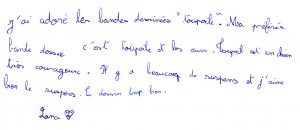 j'ai adoré les bandes dessinées "Toupoil". Ma préférée
bande dessiné c'est Toupoil et les ours. Toupoil est un chien
très courageux. Il y a beaucoup de suspens et j'aime
bien le suspens. Le dessin trop bien.
Lana